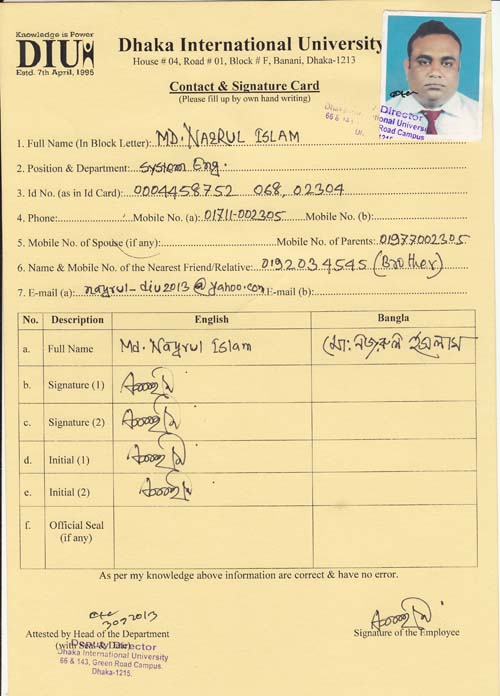 Knowledge is Power
DIU
Estd. 7th April, 1995
Dhaka International University
House # 04, Road # 01, Block # F, Banani, Dhaka-1213
Contact & Signature Card
(Please fill up by own hand writing)
Director
66 & 143,
Road Campus
1215
1. Full Name (In Block Letter): MD. NAZRUL ISLAM
2. Position & Department: System Eng.
3. Id No. (as in Id Card): 0004458752 068, 02304
4. Phone: Mobile No. (a): 01711-002305 Mobile No. (b):
5. Mobile No. of Spouse (if any): Mobile No. of Parents: 01977002305
6. Name & Mobile No. of the Nearest Friend/Relative: 0192034545 (Brother)
7. E-mail (a): nazrul-diu2013@yahoo.com E-mail (b):
No. Description English Bangla
a. Full Name Md. Nazrul Islam মো: নজরুল ইসলাম
b. Signature (1)
c. Signature (2)
d. Initial (1)
e. Initial (2)
f. Official Seal
(if any)
As per my knowledge above information are correct & have no error.
Attested by Head of the Department
(with Seal & Date)
Signature of the Employee
Deputy Director
Dhaka International University
66 & 143, Green Road Campus.
Dhaka-1215.